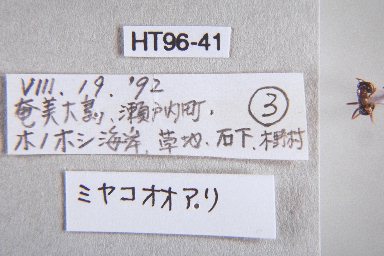 HT96-41
VIII. 19. '92
奄美大島, 瀬戸内町, ③
ホノホシ海岸, 草地, 石下, 木野村
ミヤコオオアリ